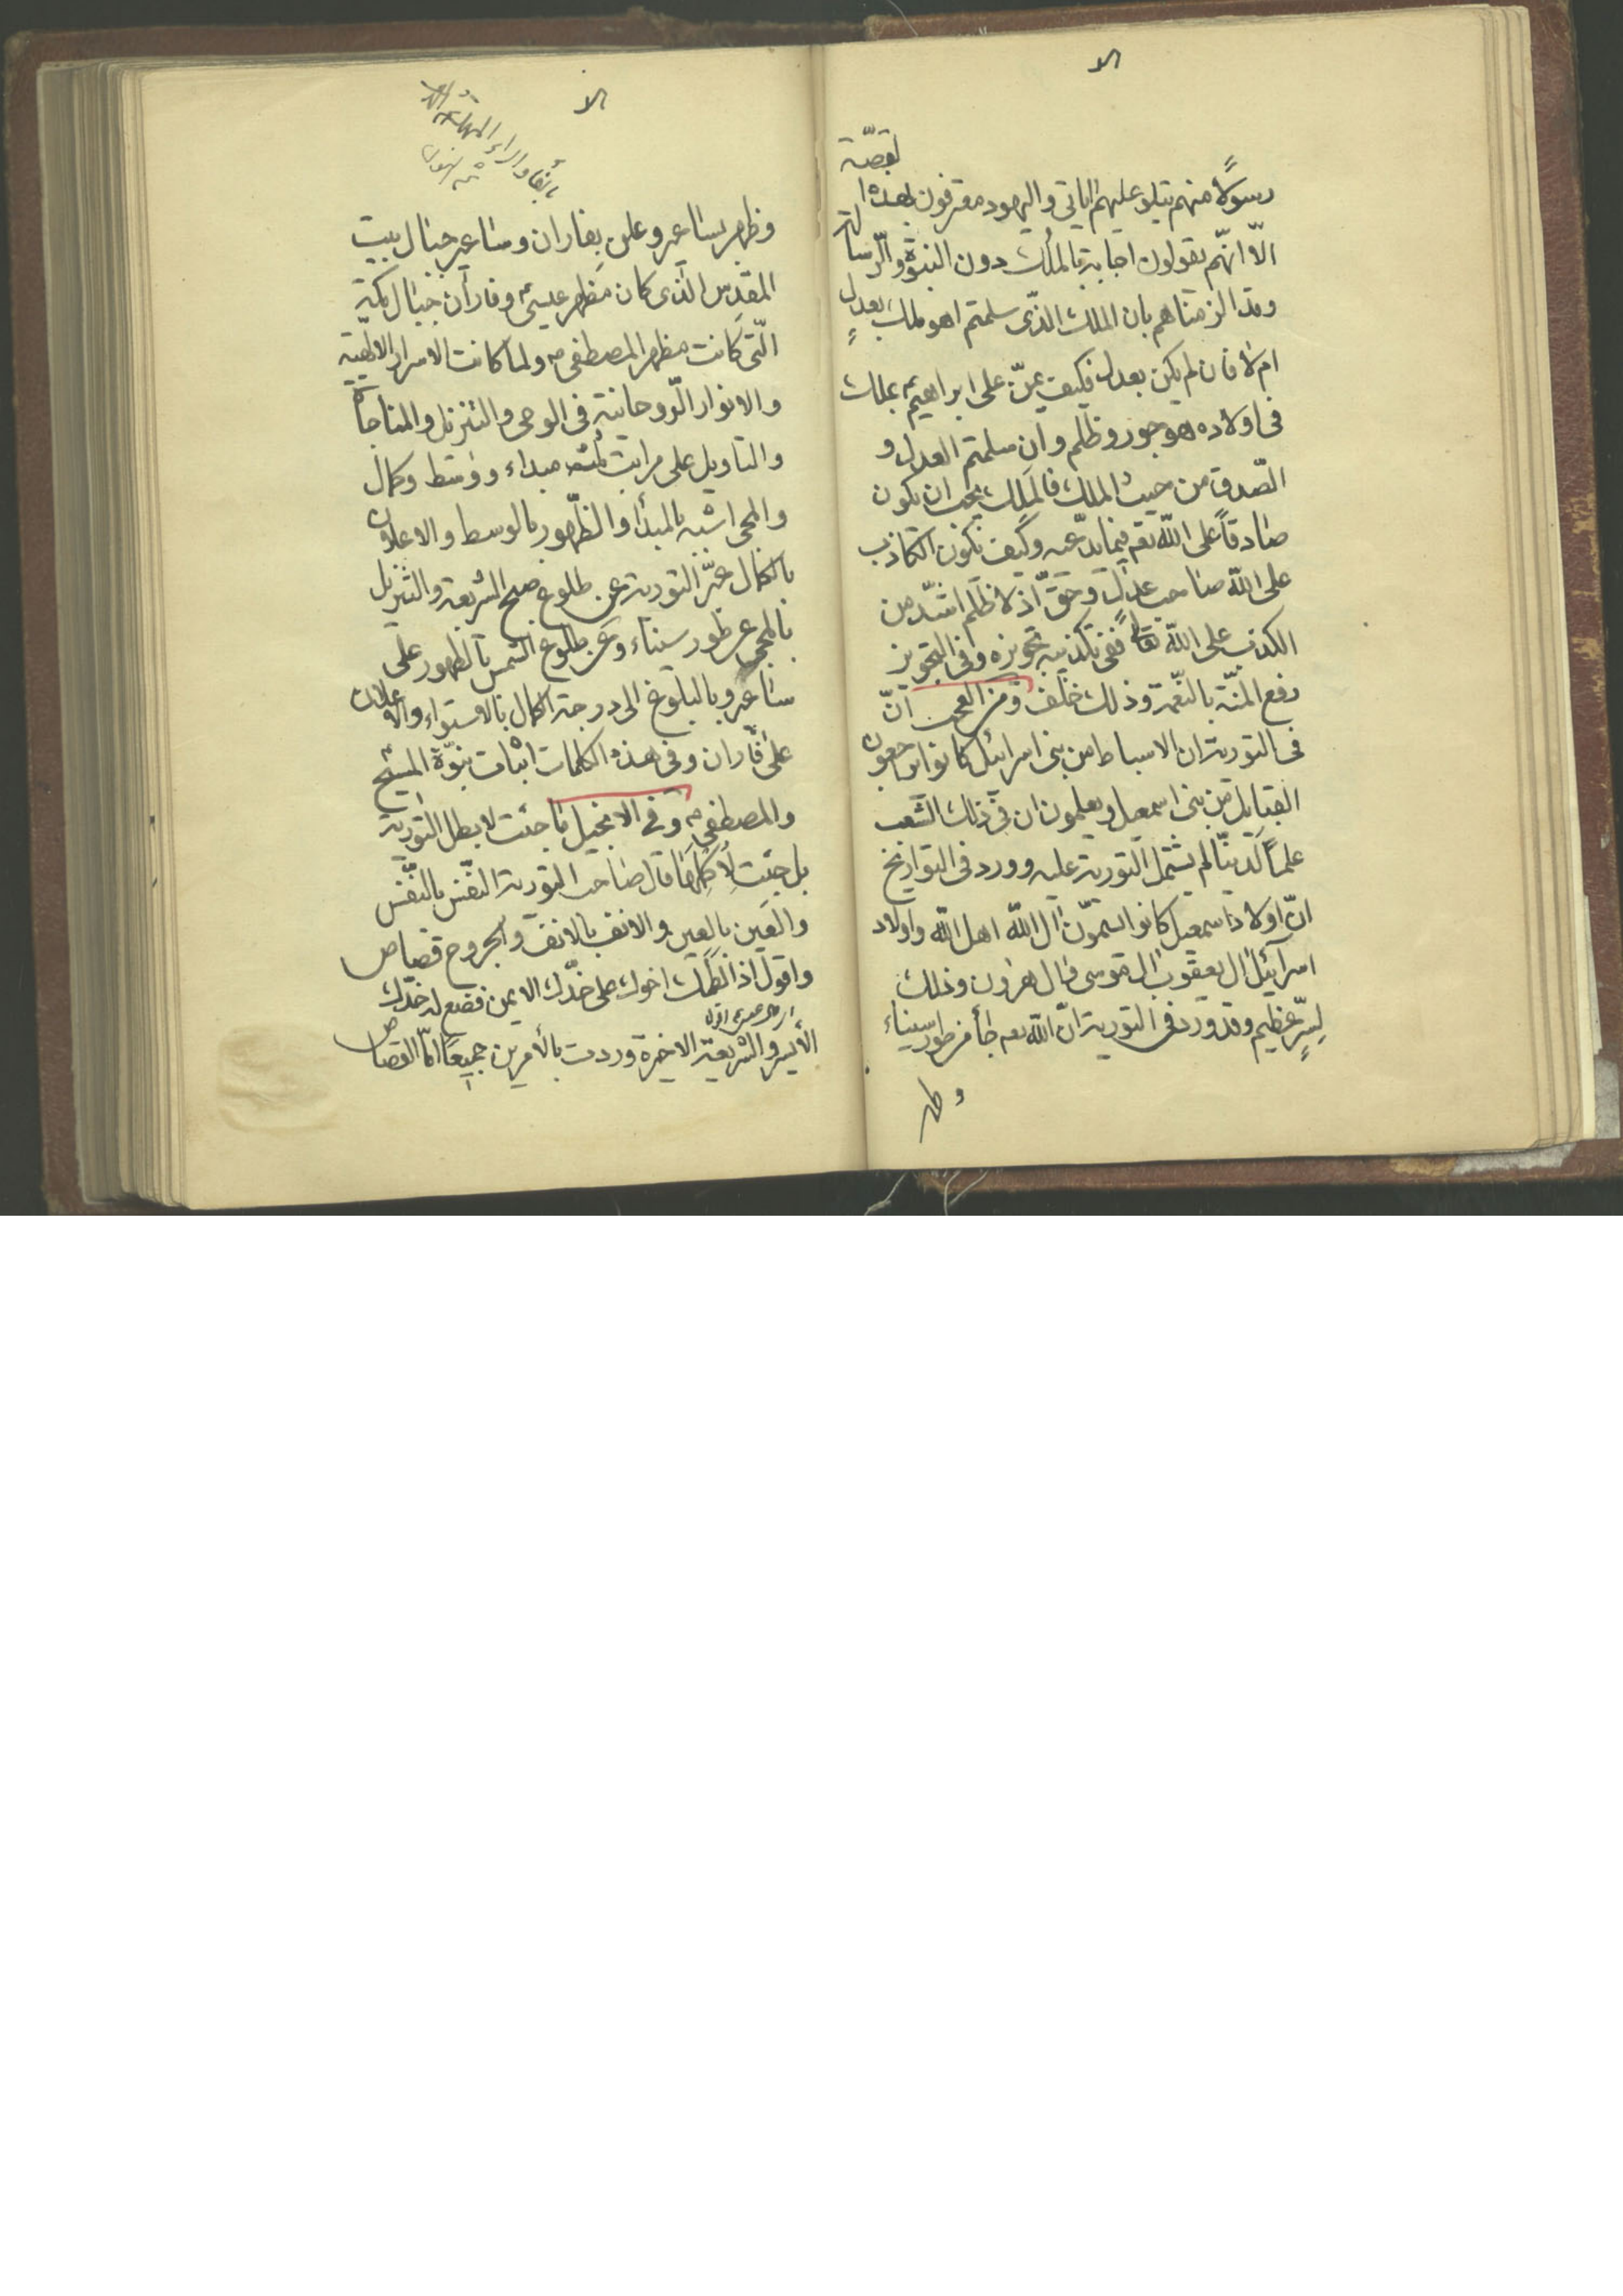 الا
رسولاً منهم يتلو عليهم اياتى واليهود معترفون بهذه القصّة
الّا انّهم يقولون اجابة بالملك دون النبوّة والرّسالة
وقد الزمناهم بان الملك الذّى سلمتم اهو ملك بعدلٍ
ام لا فان لم يكن بعدل فكيف يمنّ على ابراهيم بملك
فى اولاده هو جور وظلم وان سلمتم العدل و
الصّدق من حيث الملك فالملك يجب ان يكون
صادقاً على الله تعم فيما يدّعيه وكيف يكون الكاذب
على الله صاحب عدل وحقّ اذ لا ظلم اشدّ من
الكذب على الله تعالى ففى تكذيبه تجويزه وفى التجويز
رفع المنّة بالنّعمة وذلك خلف ومن العجب انّ
فى التورية ان الاسباط من بنى اسرائيل كانوا يراجعون
القبايل من بنى اسمعيل ويعلمون ان فى ذلك الشعب
علماً لدنيّاً لم يشتمل التورية عليه وورد فى التواريخ
انّ اولاد اسمعيل كانوا يسمّون آل الله اهل الله واولاد
اسرآئيل ال يعقوب ال موسى ال هرون وذلك
لسرّ عظيم وقد ورد فى التورية انّ الله تعم جأ من طور سيناء
وظهر
الا
وظهر بساعير وعلن بفاران وساعير جبال بيت
المقدس الذى كان مظهر عيسى وفاران جبال مكة
الّتى كانت مظهر المصطفى ولما كانت الاسرار الالهية
والانوار الرّوحانية فى الوحى والتنزيل والمناجاة
والتاويل على مراتب ثلثه مبداء ووسط وكمال
والمجئ اشبه بالمبدأ والظّهور بالوسط والاعلان
بالكمال عبّر التورية عن طلوع صبح الشريعة والتنزيل
بالمجئ عن طور سيناء وعن طلوع الشمس بالظهور على
ساعير وبالبلوغ الى درجة الكمال بالاستواء والاعلان
على فاران وفى هذه الكلمات اثبات نبوّة المسيح
والمصطفى وفى الانجيل ما جئت لابطل التورية
بل جئت لأكملها قال صاحب التورية النّفس بالنّفس
والعين بالعين والانف بالانف والجروح قصاص
واقول اذا لطمك اخوك على خدّك الايمن فضع له خدّك
الأيسر والشريعة الاخيرة وردت بالأمرين جميعاً امّا القصاص